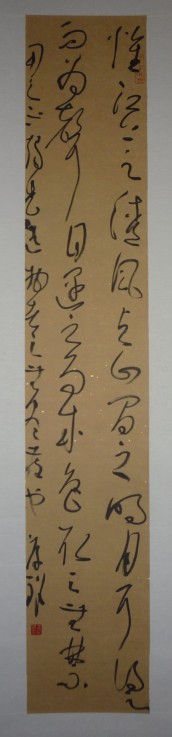 惟江上之清風与山間之明月耳得之
而為聲目遇之而成色取之無禁
用之不竭是造物者之無盡藏也